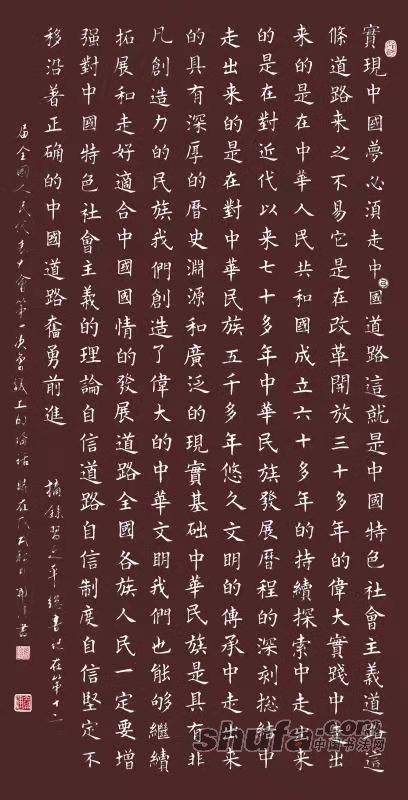 實現中國夢必須走中國道路這就是中國特色社會主義道路這
條道路来之不易它是在改革開放三十多年的偉大實踐中走出
来的是在中華人民共和國成立六十多年的持續探索中走出来
的是在對近代以来七十多年中華民族發展曆程的深刻総結中
走出来的是在對中華民族五千多年悠久文明的傳承中走出来
的具有深厚的曆史淵源和廣泛的現實基础中華民族是具有非
凡創造力的民族我們創造了偉大的中華文明我們也能够繼續
拓展和走好適合中國國情的發展道路全國各族人民一定要增
强對中國特色社會主義的理論自信道路自信制度自信堅定不
移沿著正确的中國道路奮勇前進 摘錄習近平總書记在第十二
届全國人民代表大會第一次會議上的講话 書
shufa.com
中国书法网